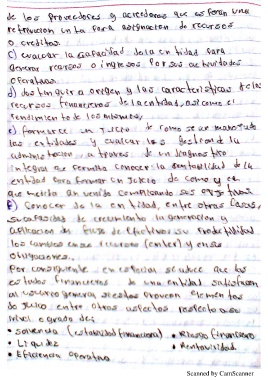 de los proveedores y acreedores que esperan una
retribución una para asignación de recursos
o creditos.
c) evaluar la capacidad de la entidad para
generar recursos o ingresos por sus actividades
operativas
d) distinguir a origen y las caracteristicas de los
recursos financieros de la entidad, asi como el
rendimiento de los mismos,
e) formarse un juicio de como se ha manejado
las entidades y evaluar la gestion de la
administración a traves de un diagnostico
integral que permita conocer la rentabilidad de la
entidad para formar un juicio de como y
que medida ha venido cumpliendo sus objetivos.
f) Conocer de la entidad, entre otras cosas,
su capacidad de crecimiento la generación y
aplicación de flujo de efectivo su productividad
los cambios en sus recursos y en sus
obligaciones.
Por consiguiente en esencia se aduce que los
estados financieros de una entidad satisfacen
al usuario general si estos proveen elementos
de juicio entre otros aspectos respecto a su
nivel o grado de:
• Solvencia (estabilidad financiera) • Riesgo financiero
• Liquidez • Rentabilidad
• Eficiencia operativa
Scanned by CamScanner